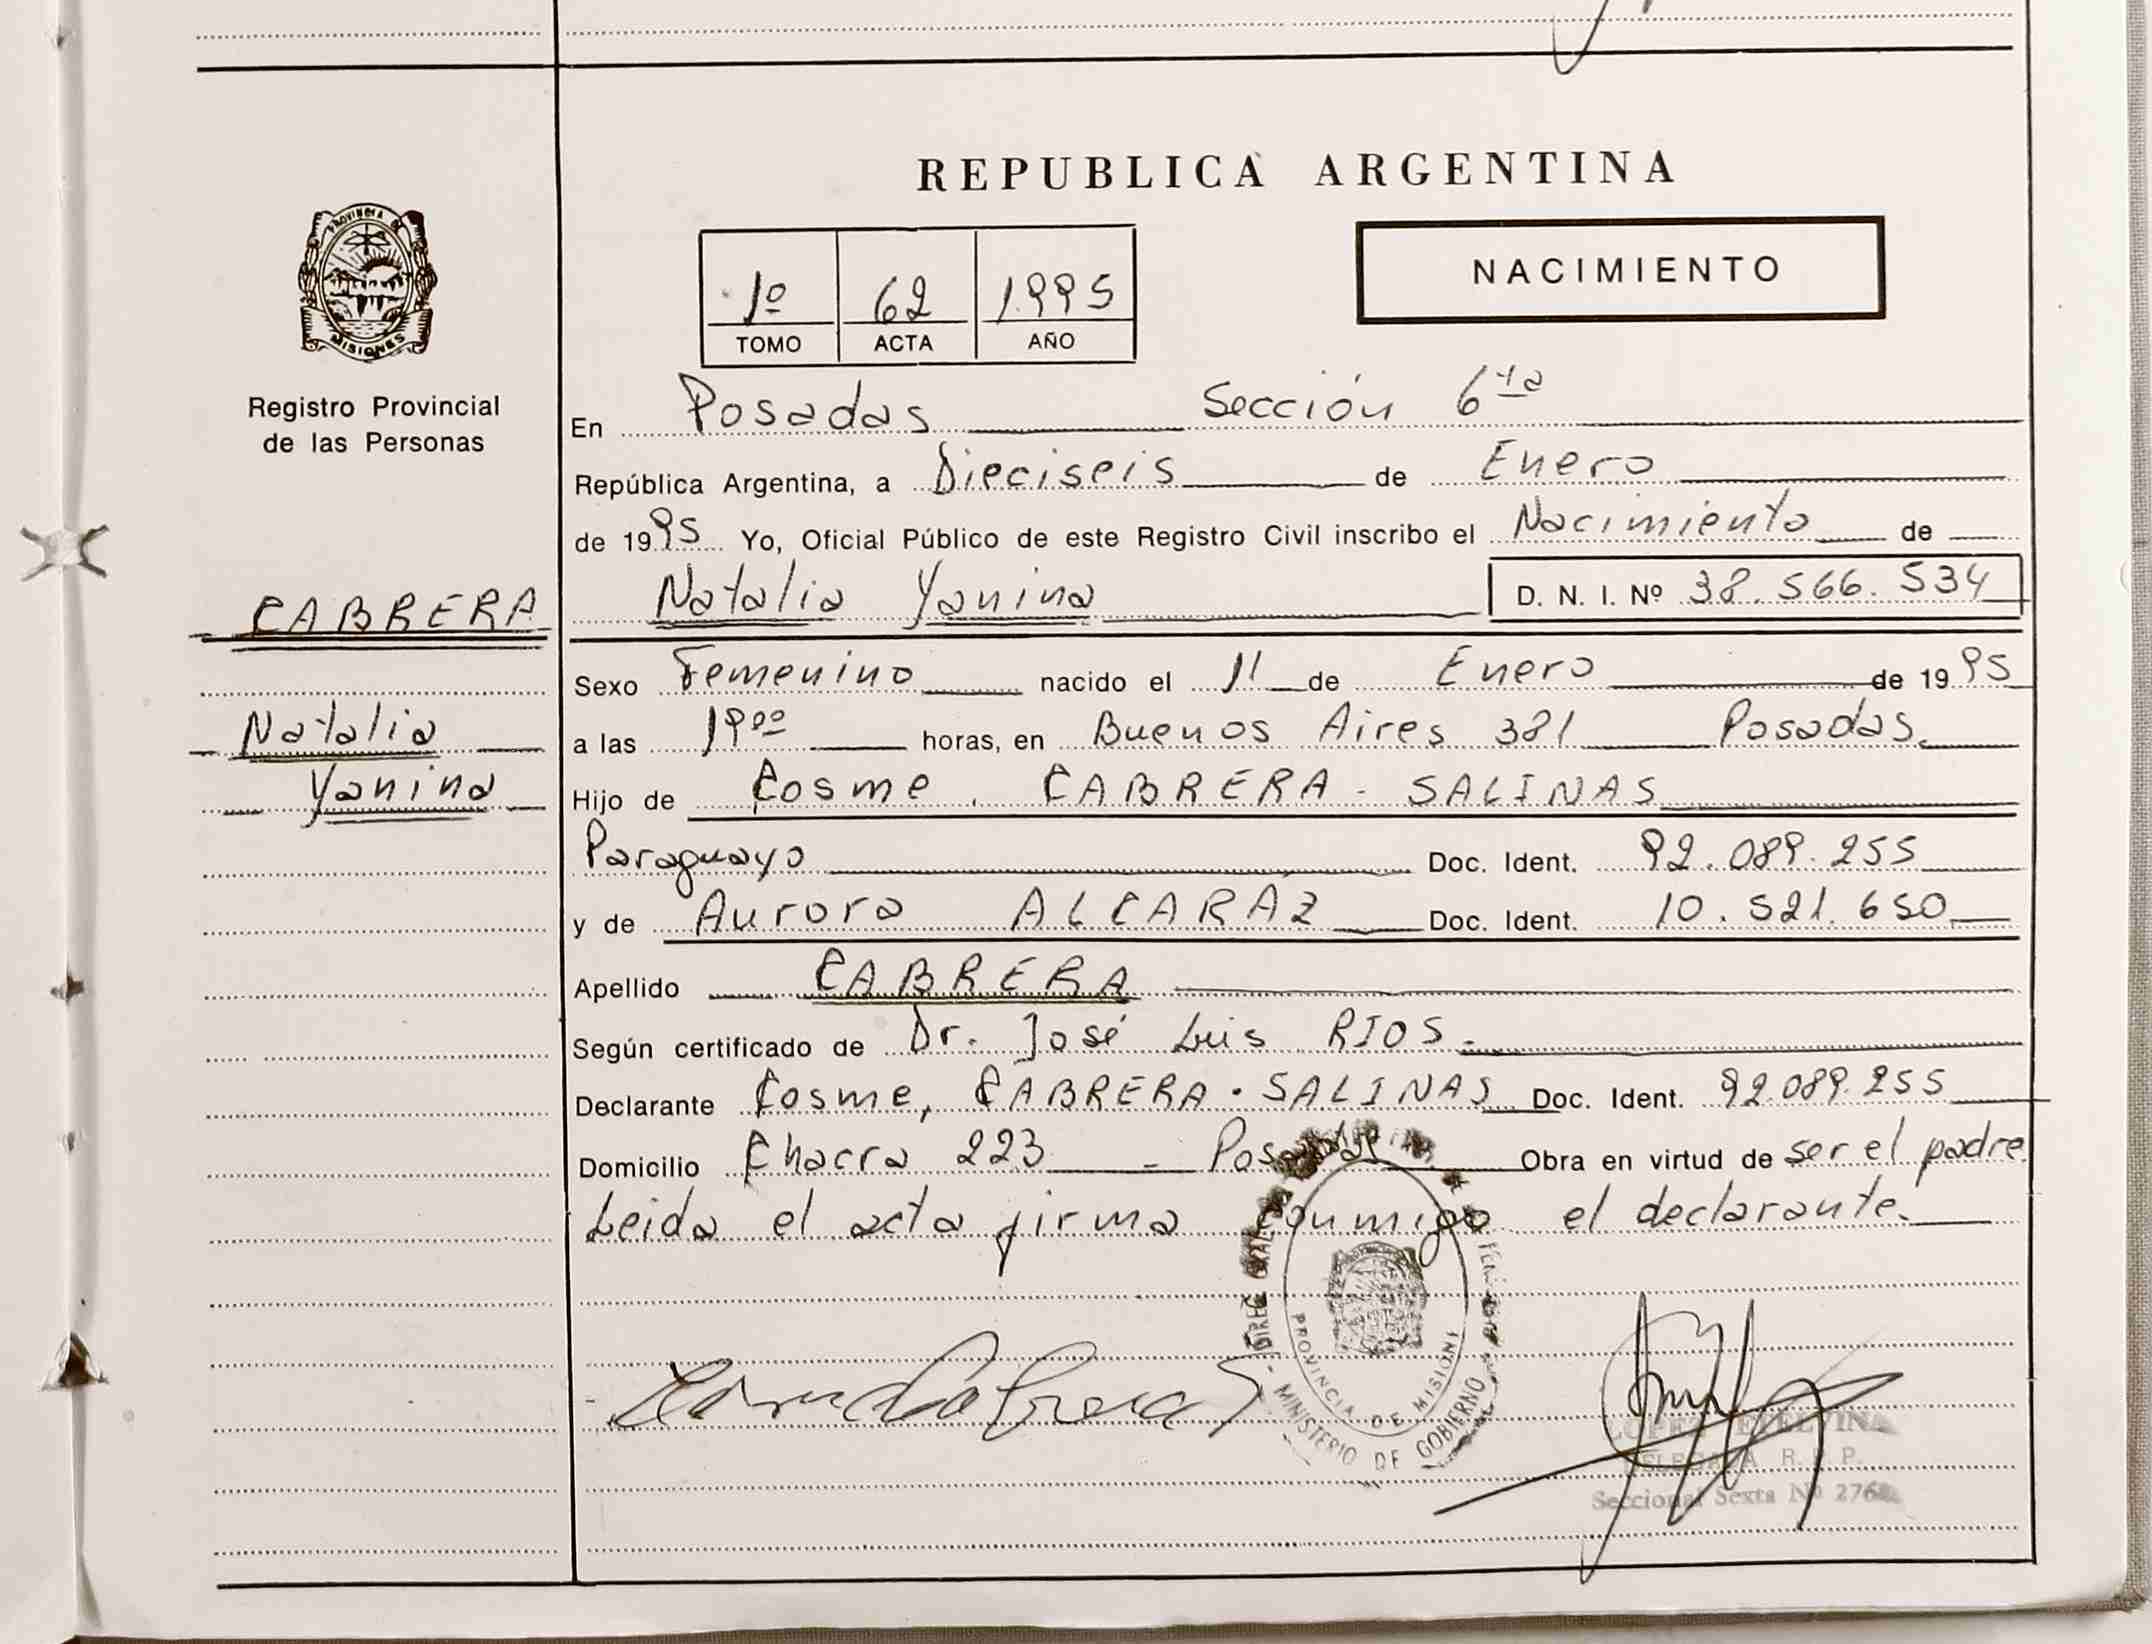 REPUBLICA ARGENTINA
PROVINCIA DE
MISIONES
Registro Provincial
de las Personas
1º 62 1995
TOMO ACTA AÑO
NACIMIENTO
En Posadas Sección 6ta
República Argentina, a Dieciseis de Enero
de 1995 Yo, Oficial Público de este Registro Civil inscribo el Nacimiento de
Natalia Yanina D. N. I. Nº 38.566.534
CABRERA
Natalia
Yanina
Sexo Femenino nacido el 11 de Enero de 1995
a las 19 00 horas, en Buenos Aires 381 Posadas.
Hijo de Cosme, CABRERA - SALINAS
Paraguayo Doc. Ident. 92.089.255
y de Aurora ALCARAZ Doc. Ident. 10.521.650
Apellido CABRERA
Según certificado de Dr. José Luis RIOS.
Declarante Cosme, CABRERA - SALINAS Doc. Ident. 92.089.255
Domicilio Chacra 223 - Posadas Obra en virtud de ser el padre
Leida el acta firma conmigo el declarante.
PROVINCIA DE MISIONES
MINISTERIO DE GOBIERNO
LOPEZ ETELVINA
DELEGADA R. P. P.
Seccional Sexta Nº